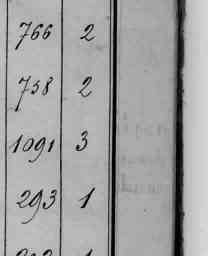 766 2
758 2
1091 3
293 1